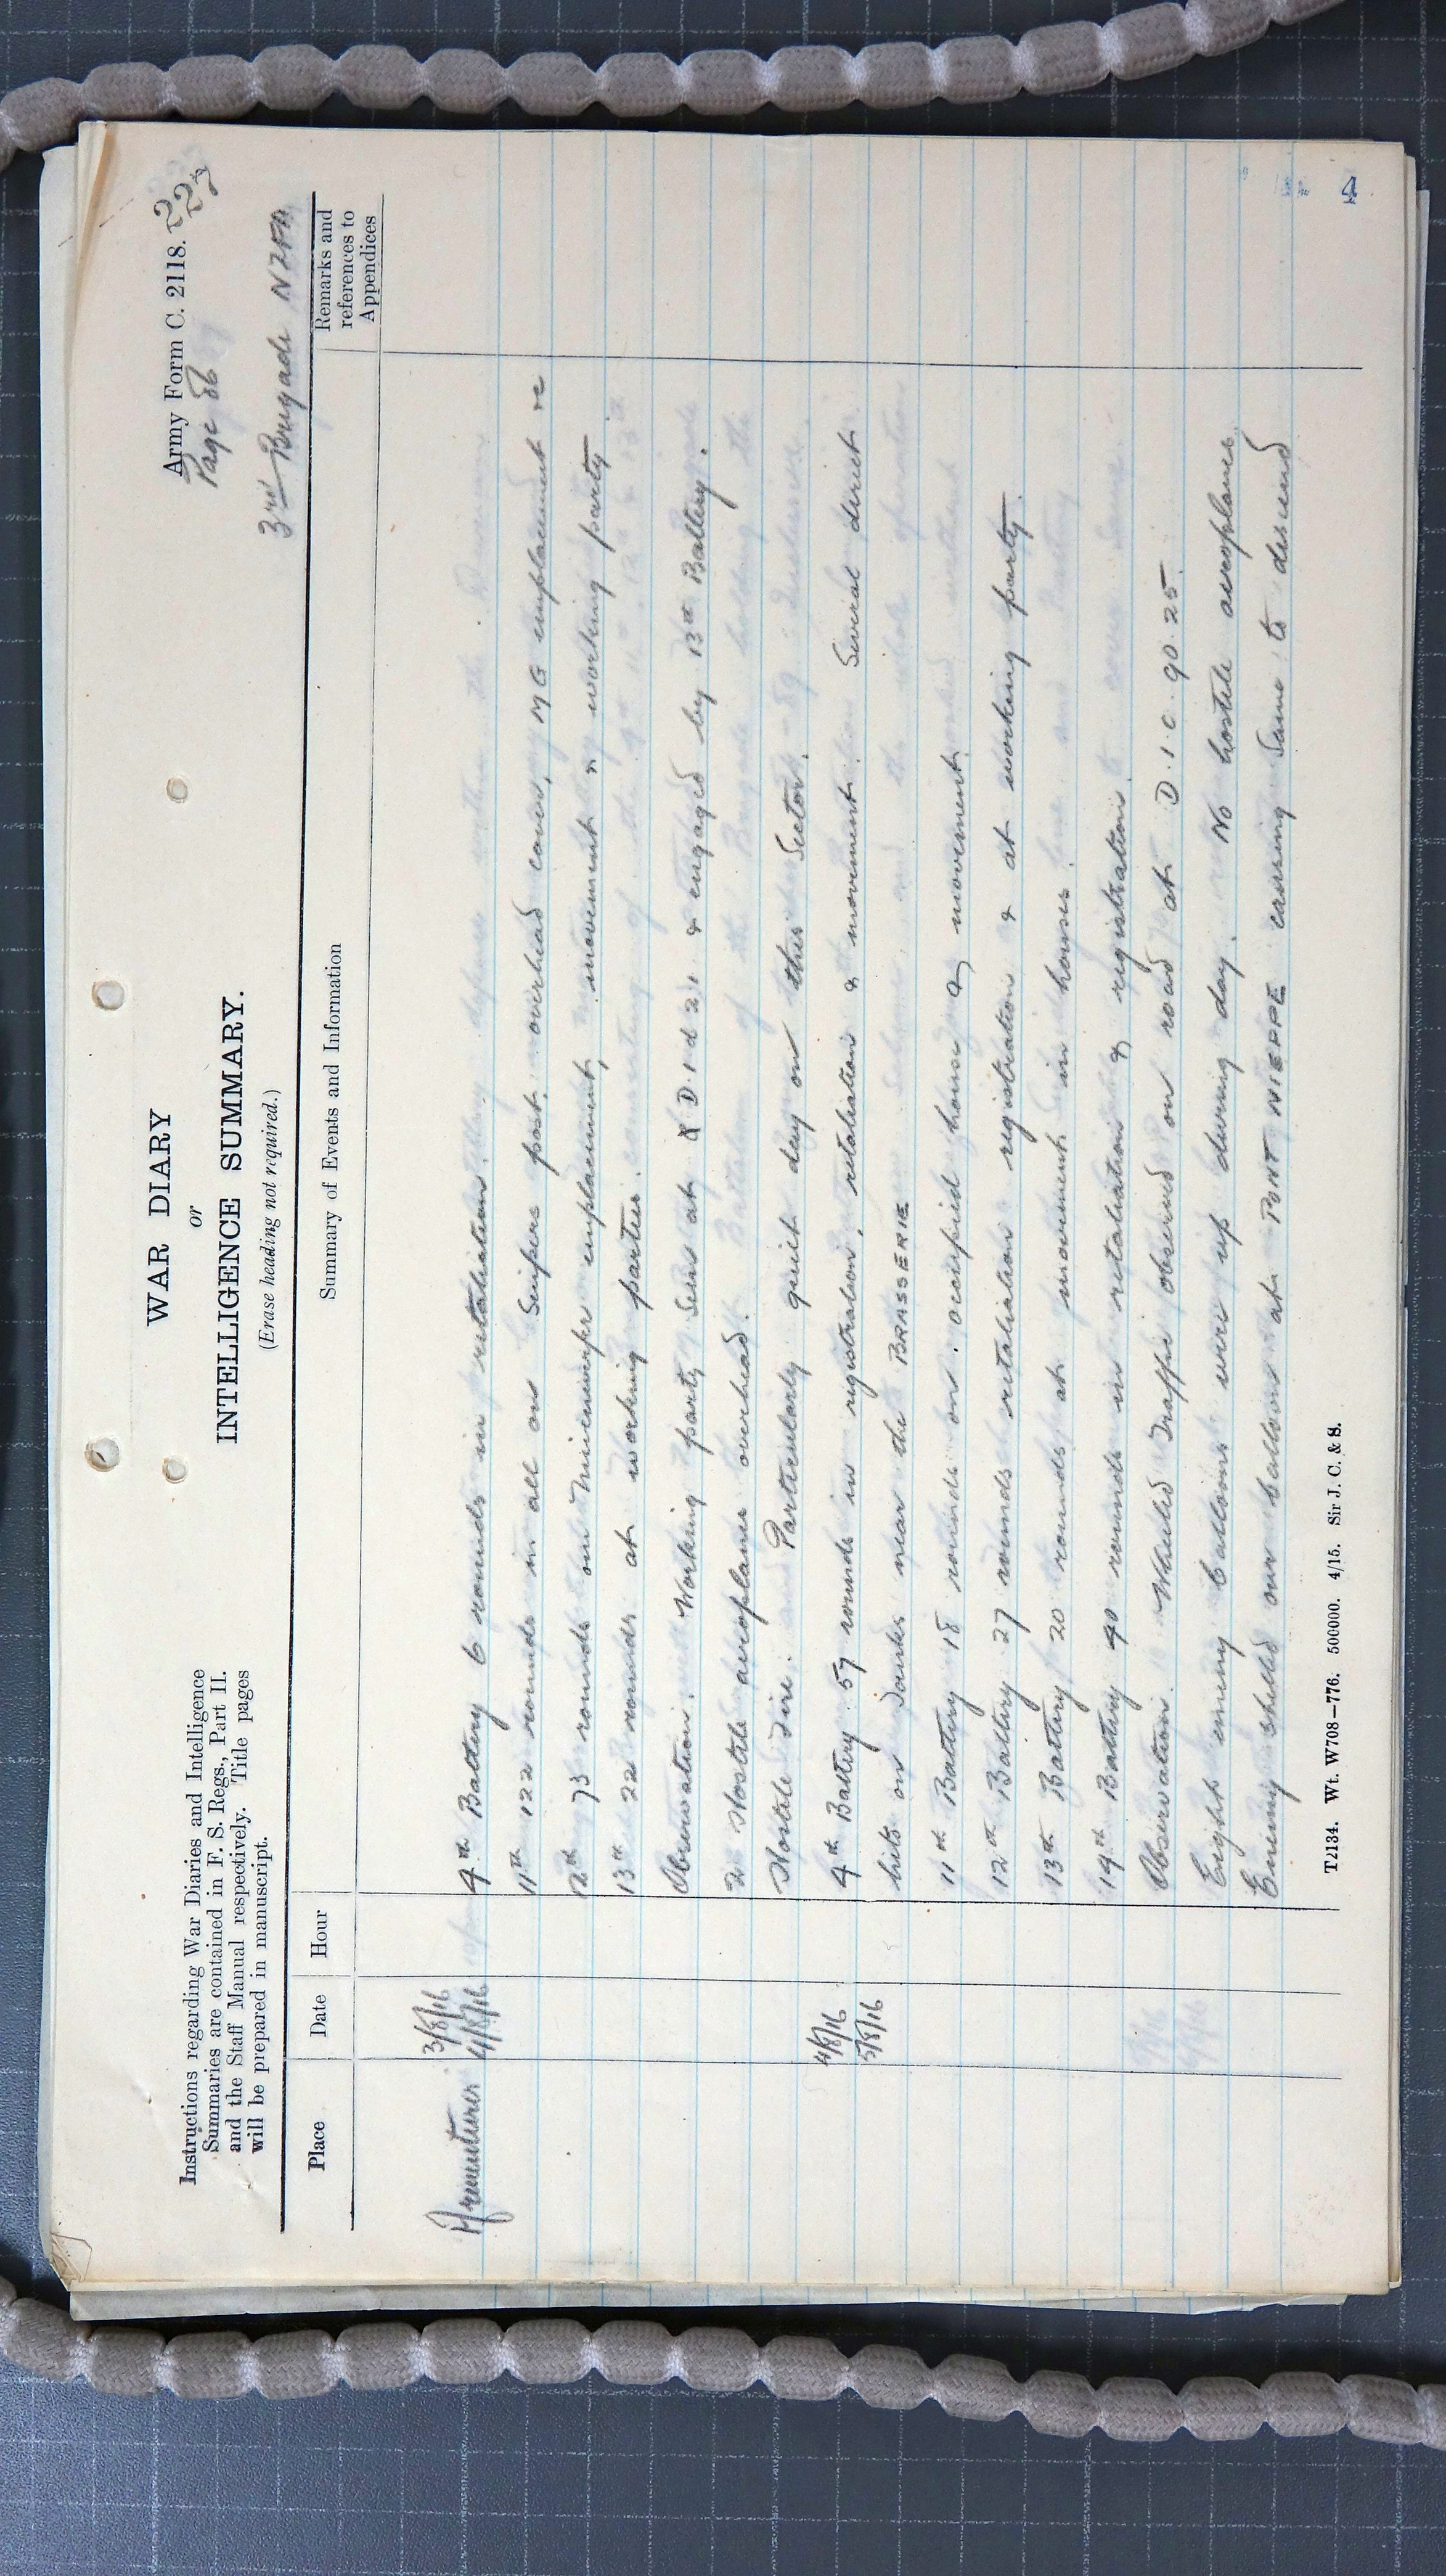 Army Form C. 2118.
227
Page 86
3rd Brigade NZFA
WAR DIARY
or
INTELLIGENCE SUMMARY.
(Erase heading not required.)
Instructions regarding War Diaries and Intelligence
Summaries are contained in F. S. Regs., Part II.
and the Staff Manual respectively. Title pages
will be prepared in manuscript.
Place Date Hour Summary of Events and Information Remarks and references to Appendices
3/8/16
Armentieres 4/8/16 4th Battery 6 rounds in retaliation.
11th 122 rounds in all on Snipers post, overhead cover, MG emplacement re
12th 73 rounds on Minenwerfer emplacement, movement & working party.
13th 22 rounds at working parties.
Observation. Working party seen at D.1.d 2.1 & engaged by 13th Battery.
2 Hostile aeroplanes overhead.
Hostile Fire. Particularly quiet day on this Sector.
4/8/16 4th Battery 57 rounds in registration, retaliation & movement. Several direct
5/8/16 hits on tanks near the BRASSERIE
11th Battery 18 rounds on occupied house & movement.
12th Battery 27 rounds retaliation registration & at working party.
13th Battery 20 rounds at movement in houses.
14th Battery 40 rounds in retaliation & registration.
Observation. Wheeled Traffic observed on road at D.1.c.90.25.
Eight enemy balloons were up during day. No hostile aeroplanes.
Enemy shelled our balloon at PONT NIEPPE causing same to descend
T2134. Wt. W708—776. 500000. 4/15. Sir J. C. & S.
4